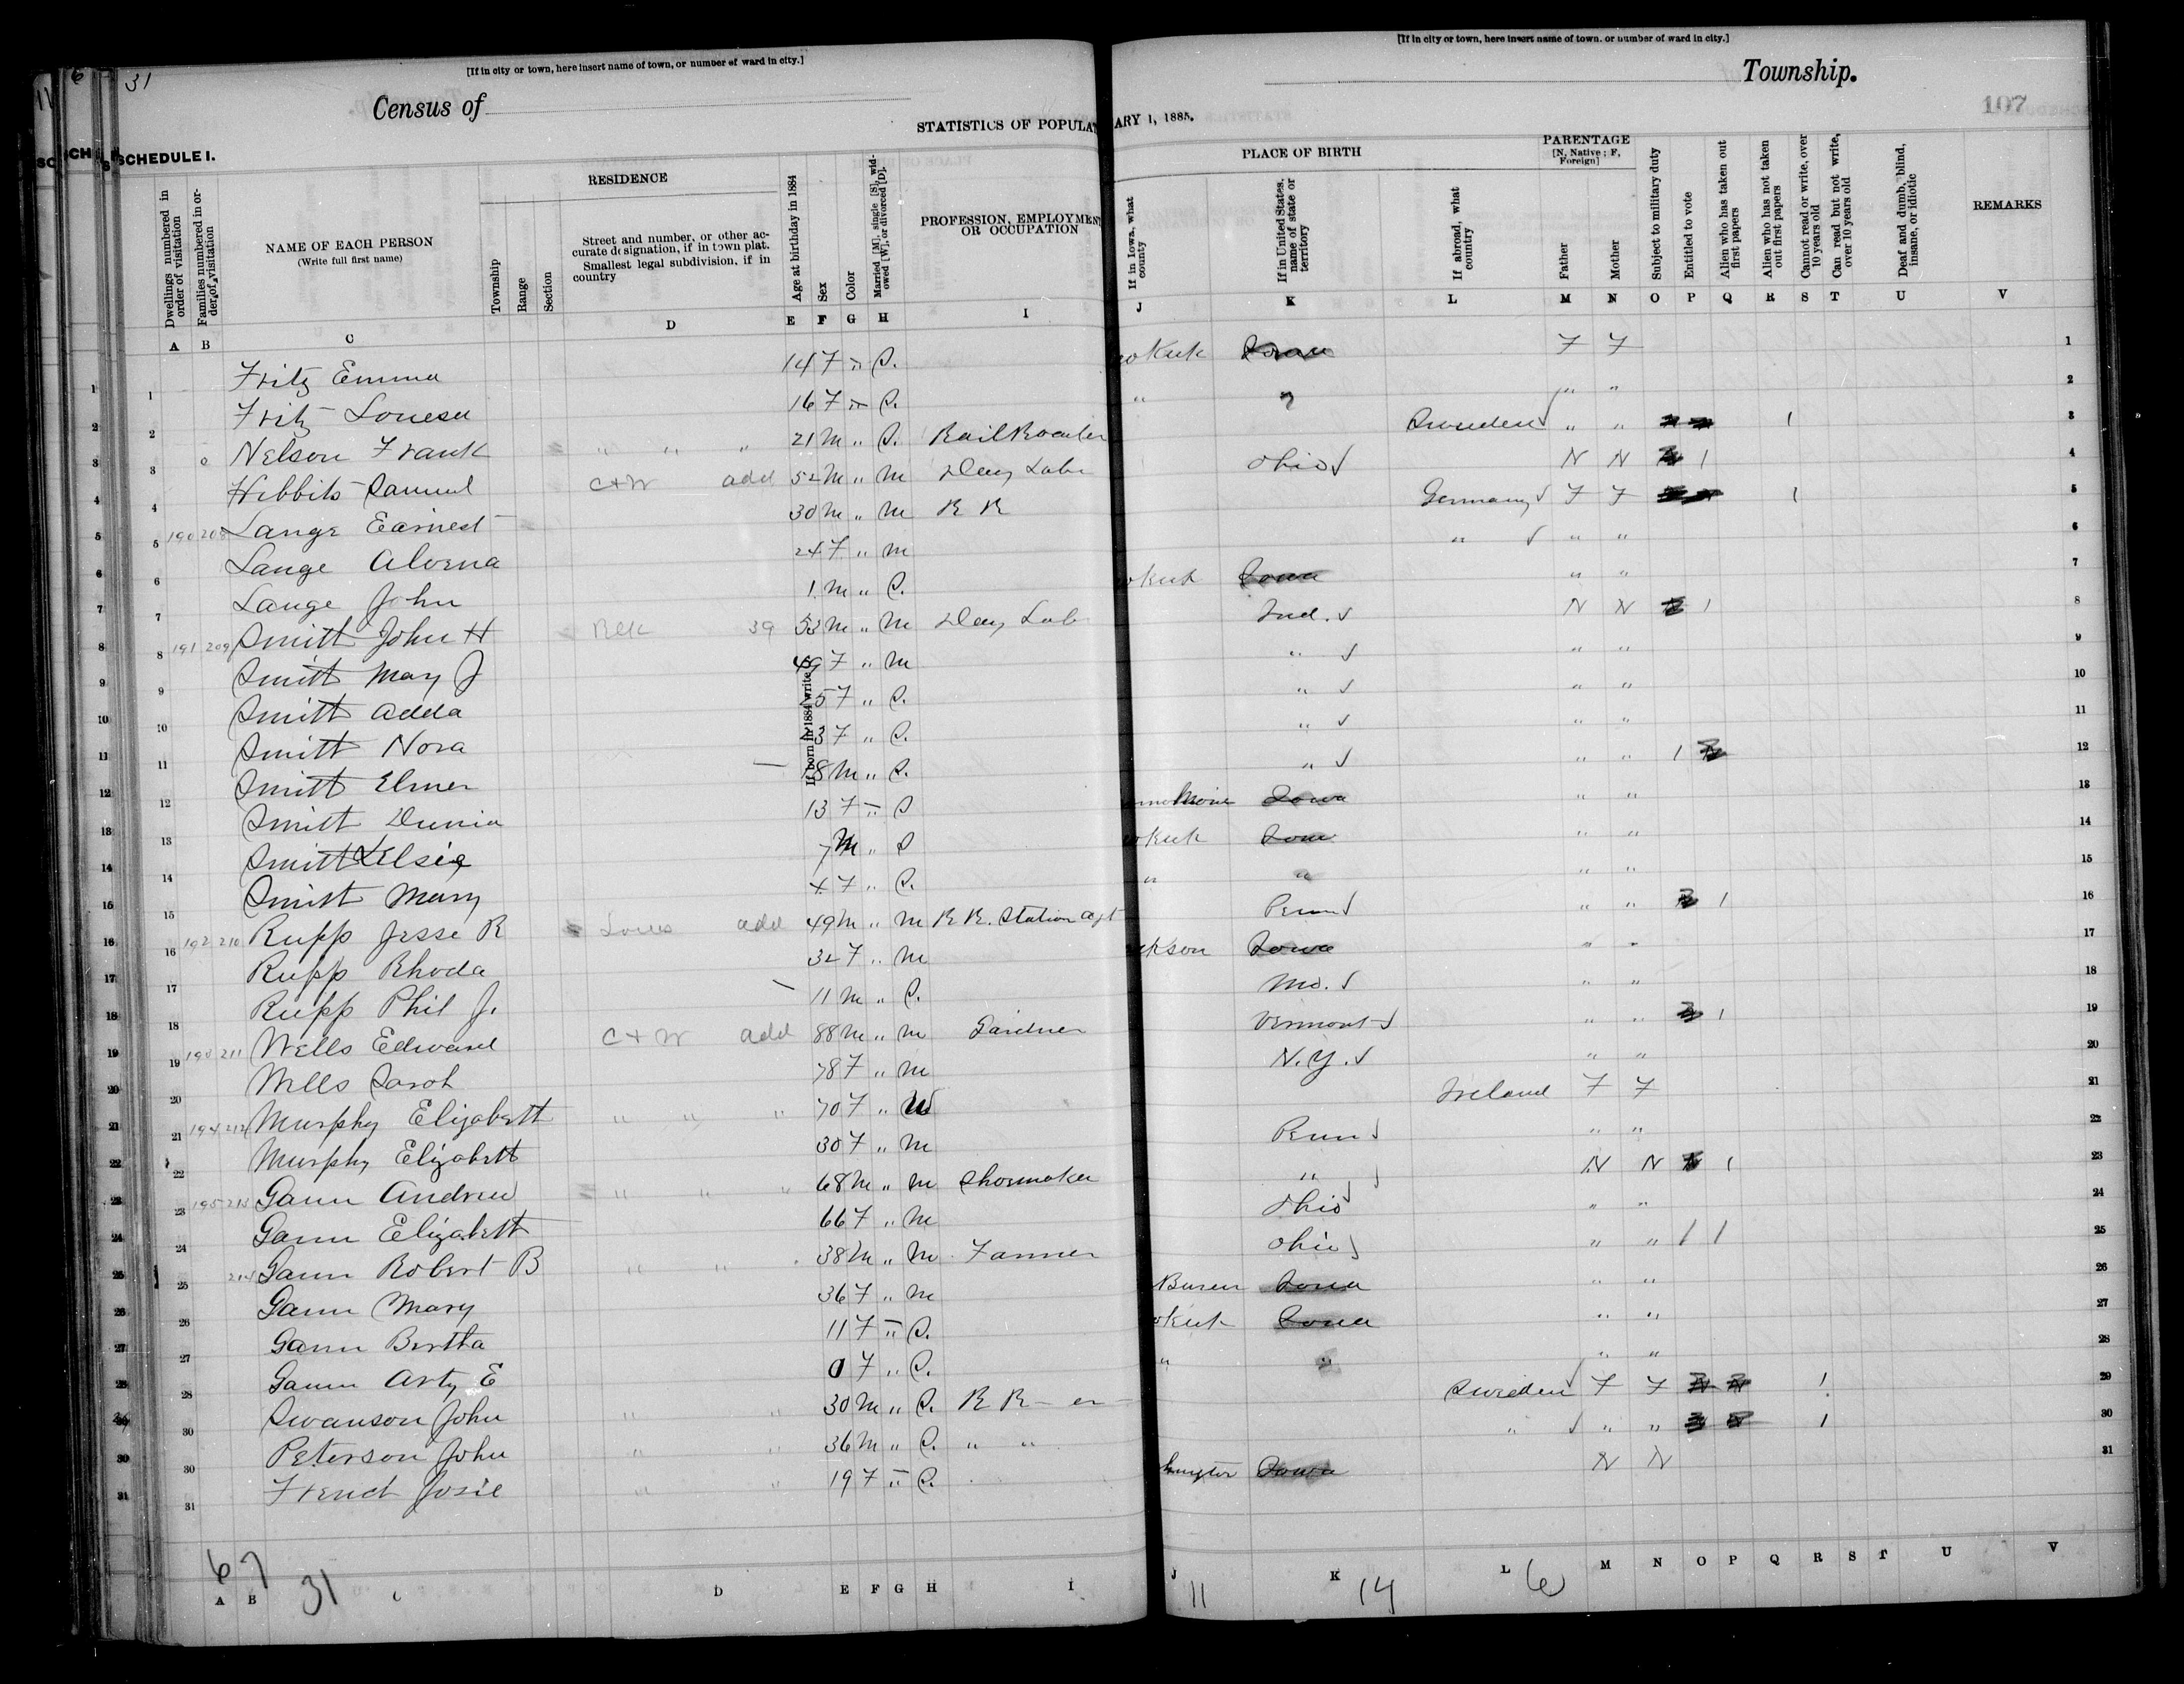 [If in city or town, here insert name of town, or number of ward in city.]
[If in city or town, here insert name of town, or number of ward in city.]
31
Census of
Township.
107
STATISTICS OF POPULA
ARY 1, 1885.
SCHEDULE I.
Dwellings numbered in order of visitation
Families numbered in order of visitation
NAME OF EACH PERSON
(Write full first name)
RESIDENCE
Township
Range
Section
Street and number, or other accurate designation, if in town plat.
Smallest legal subdivision, if in country
Age at birthday in 1884
If born in 1884 write 0.
Sex
Color
Married [M], single [S], widowed [W], or divorced [D].
PROFESSION, EMPLOYMENT OR OCCUPATION
PLACE OF BIRTH
If in Iowa, what county
If in United States, name of state or territory
If abroad, what country
PARENTAGE
[N, Native; F, Foreign]
Father
Mother
Subject to military duty
Entitled to vote
Alien who has taken out first papers
Alien who has not taken out first papers
Cannot read or write, over 10 years old
Can read but not write, over 10 years old
Deaf and dumb, blind, insane, or idiotic
REMARKS
A B C D E F G H I J K L M N O P Q R S T U V
1 Fritz Emma 14 F " S. okuk Iowa F F 1
2 Fritz Louesa 16 F " S. " " " " 2
3 Nelson Frank " " " 21 M " S. Sweden " " 1 3
4 Hibbits Samuel C+W add 52 M " M Day Lab Ohio N N 1 4
5 190 208 Lange Earnest 30 M " M R R Germany F F 1 5
6 Lange Alvena 24 F " M " " " 6
7 Lange John 1 M " S. okuk Iowa " " 7
8 191 209 Smitt John H Blk 39 53 M " M Day Lab Ind. N N 1 8
9 Smitt Mary J 49 F " M " " " 9
10 Smitt Adda 25 F " S. " " " 10
11 Smitt Nora 23 F " S. " " " 11
12 Smitt Elmer 18 M " S. " " " 1 12
13 Smitt 13 F " S Iowa " " 13
14 Smitt Elsie 7 M " S okuk Iowa " " 14
15 Smitt Mary 4 F " S. " " " " 15
16 192 210 Rupp Jesse R add 49 M " M R R. Station Agt Penn " " 1 16
17 Rupp Rhoda 32 F " M ckson Iowa " " 17
18 Rupp Phil J. 11 M " S. Mo. " " 18
19 193 211 Wells Edward C+W add 88 M " M Gardner Vermont " " 1 19
20 Wells Sarah 78 F " M N.Y. " " 20
21 194 212 Murphy Elizabett " " " 70 F " W Ireland F F 21
22 Murphy Elizabett 30 F " M Penn " " 22
23 195 213 Gann Andrew " " " 68 M " M Shoemaker " N N 1 23
24 Gann Elizabett 66 F " M Ohio " " 24
25 214 Gann Robert B " " 38 M " M Farmer Ohio " " 1 1 25
26 Gann Mary 36 F " M Buren Iowa " " 26
27 Gann Bertha 11 F " S. okuk Iowa " " 27
28 Gann Arty E 0 F " S. " " " " 28
29 Swanson John " " 30 M " S. R R - er Sweden F F 1 29
30 Peterson John " " 36 M " S. " " " " " 1 30
31 French Josie " " 19 F " S. Iowa N N 31
6 7 31 11 14 6
A B C D E F G H I J K L M N O P Q R S T U V